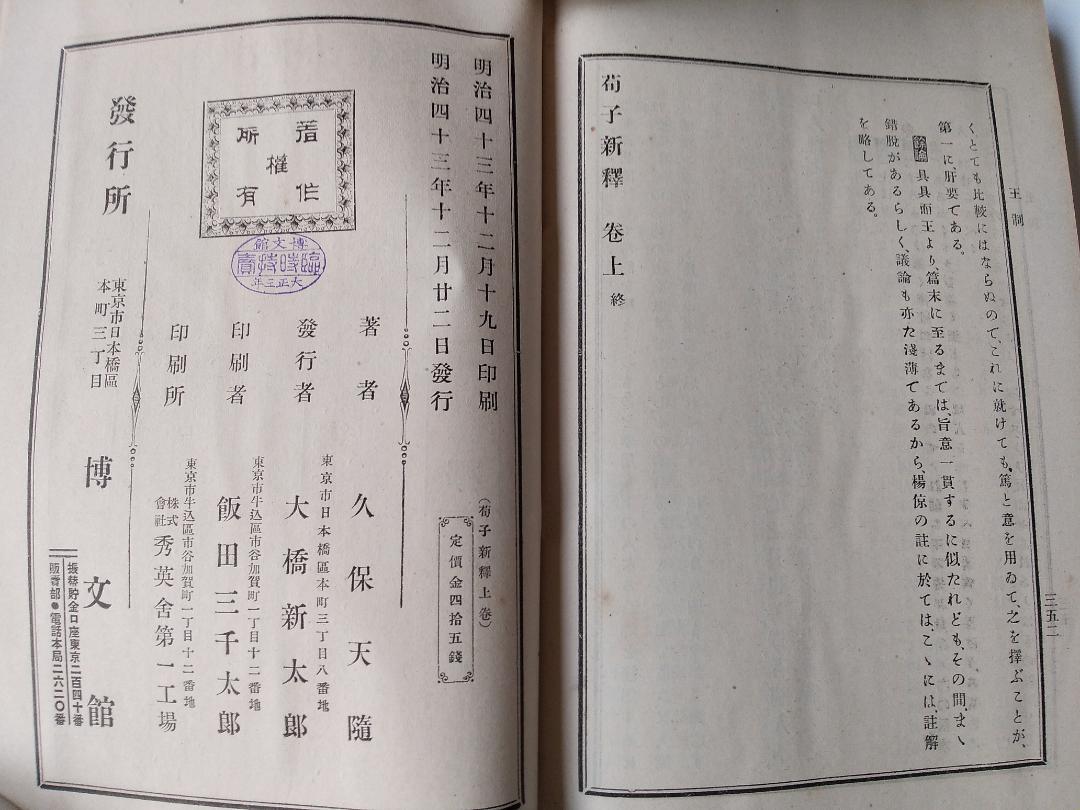 王制
くとても比較にはならぬので、これに就けても、篤と意を用ゐて、之を擇ぶことが、
第一に、肝要である。
具具而王より篇末に至るまでは、旨意一貫するに似たれども、その間、まゝ
錯脫があるらしく、議論も亦た淺薄であるから、楊倞の註に於ては、こゝには、註解
を略してある。
荀子新釋 卷上 終
三五二
明治四十三年十二月十九日印刷
明治四十三年十二月廿二日發行
(荀子新釋上卷)
定價金四拾五錢
著作權所有
博文館
臨時特賣
大正三年
著者 久保天隨
東京市日本橋區本町三丁目八番地
發行者 大橋新太郎
東京市牛込區市谷加賀町一丁目十二番地
印刷者 飯田三千太郎
東京市牛込區市谷加賀町一丁目十二番地
印刷所 株式會社 秀英舍第一工場
發行所
東京市日本橋區
本町三丁目
博文館
振替貯金口座東京二百四十番
販賣部●電話本局二六二〇番